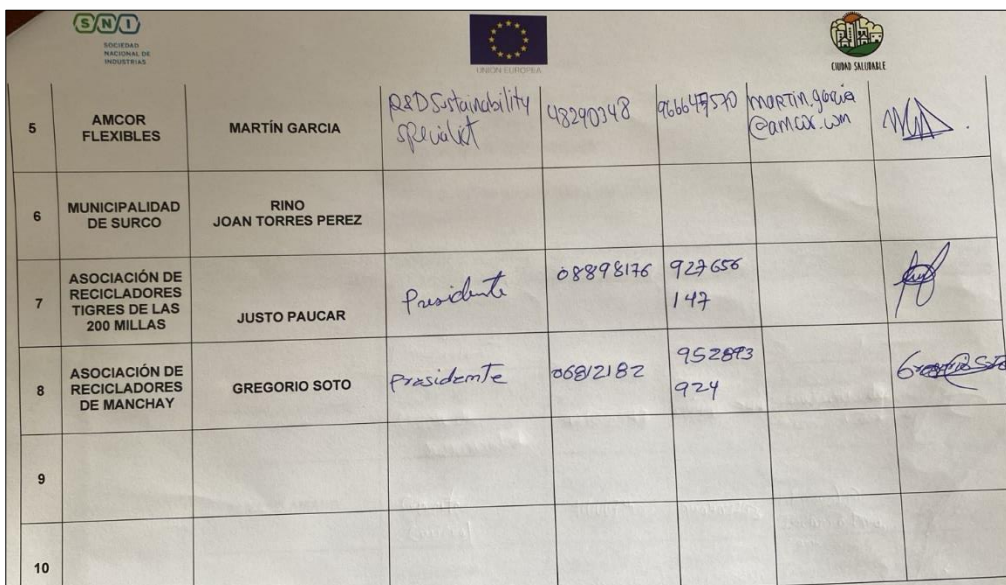 SNI
SOCIEDAD
NACIONAL DE
INDUSTRIAS
UNIÓN EUROPEA
CIUDAD SALUDABLE
5
AMCOR
FLEXIBLES
MARTÍN GARCIA
R&D Sustainability
specialist
48290348
martin.garcia
@amcor.com
6
MUNICIPALIDAD
DE SURCO
RINO
JOAN TORRES PEREZ
7
ASOCIACIÓN DE
RECICLADORES
TIGRES DE LAS
200 MILLAS
JUSTO PAUCAR
Presidente
08898176
927656
147
8
ASOCIACIÓN DE
RECICLADORES
DE MANCHAY
GREGORIO SOTO
Presidente
06812182
952893
924
9
10